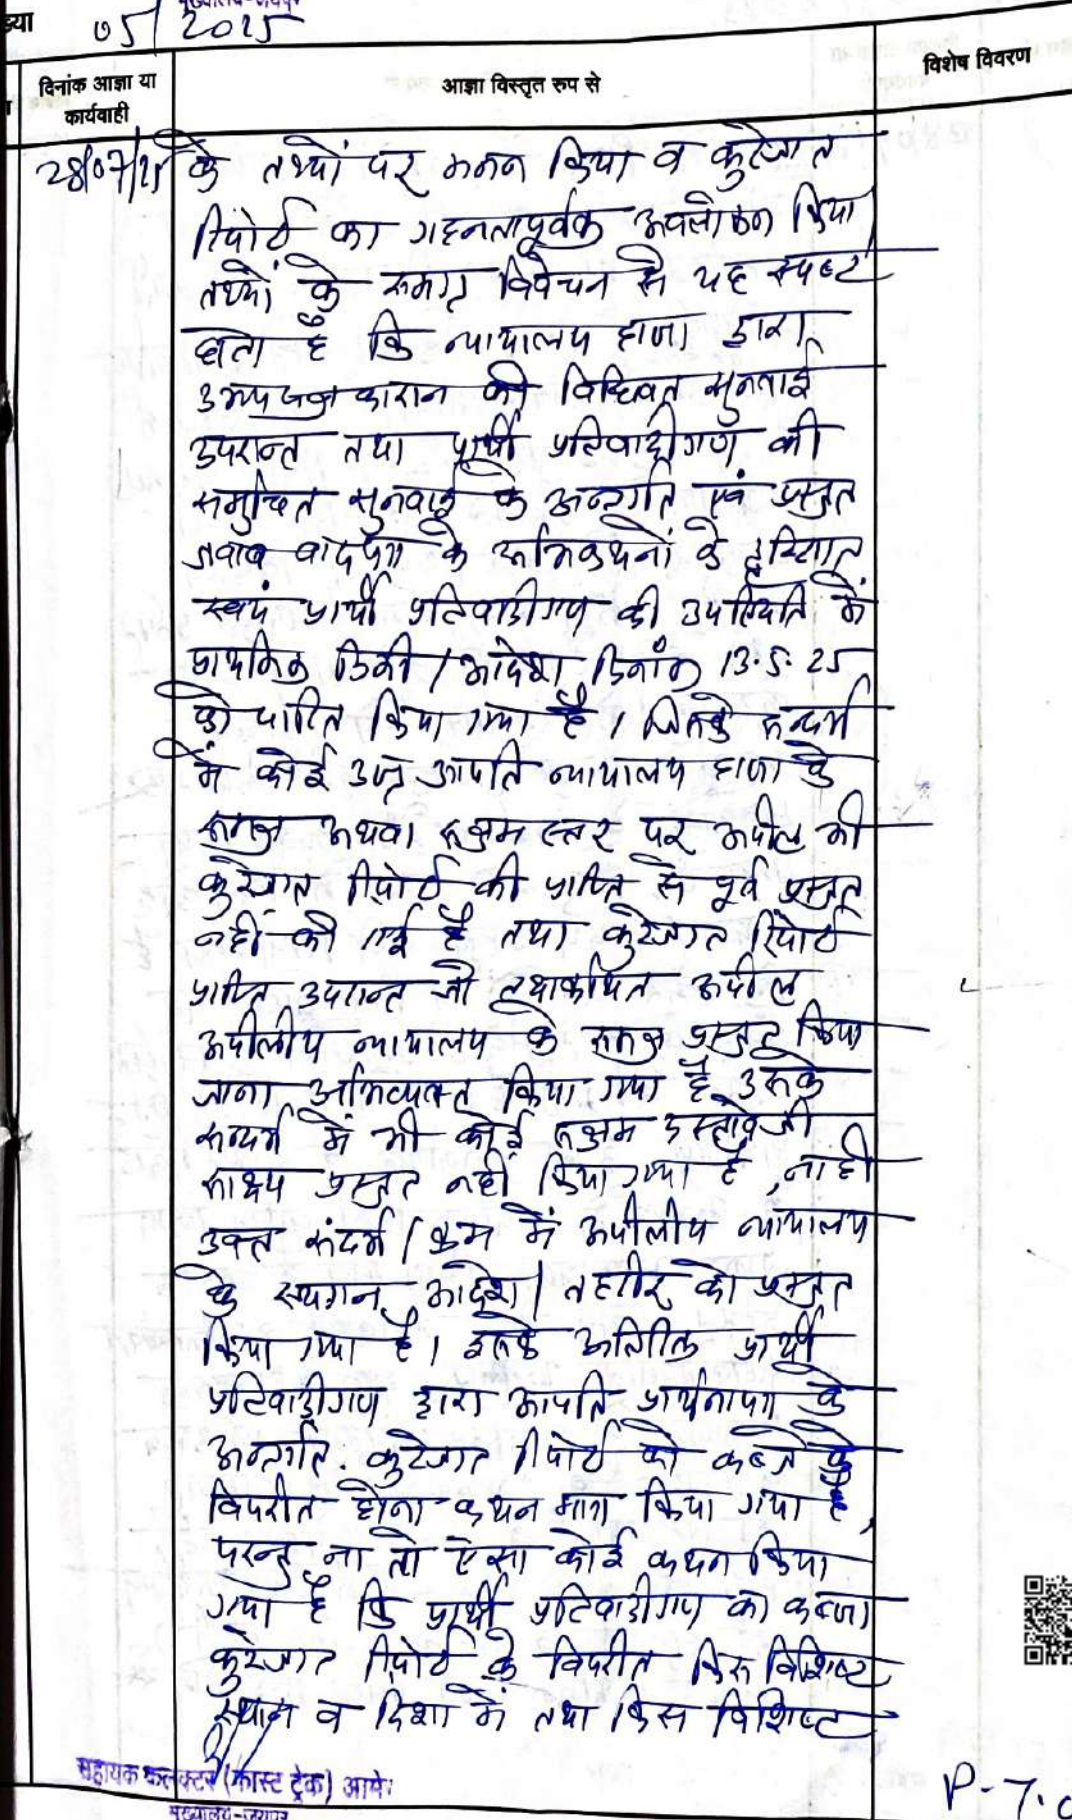 05/2025
दिनांक आज्ञा या
कार्यवाही
आज्ञा विस्तृत रुप से
विशेष विवरण
28/07/25
के तथ्यों पर मनन किया व कुरेजात
रिपोर्ट का गहनतापूर्वक अवलोकन किया
तथ्यों के समग्र विवेचन से यह स्पष्ट
होता है कि न्यायालय हाजा द्वारा
उभयपक्षकारान की विधिवत सुनवाई
उपरान्त तथा प्रार्थी प्रतिवादीगण की
समुचित सुनवाई के अन्तर्गत एवं प्रस्तुत
जवाब वादपत्र के अभिकथनों के दृष्टिगत
स्वयं प्रार्थी प्रतिवादीगण की उपस्थिति में
प्राथमिक डिक्री / आदेश दिनांक 13.5.25
को पारित किया गया है। जिसके सन्दर्भ
में कोई उज्र आपति न्यायालय हाजा के
समक्ष अथवा सक्षम स्तर पर अपील की
कुरेजात रिपोर्ट की प्राप्ति से पूर्व प्रस्तुत
नहीं की गई है तथा कुरेजात रिपोर्ट
प्राप्ति उपरान्त जो तथाकथित अपील
अपीलीय न्यायालय के समक्ष प्रस्तुत किया
जाना अभिव्यक्त किया गया है उसके
सन्दर्भ में भी कोई सक्षम दस्तावेजी
साक्ष्य प्रस्तुत नहीं किया गया है, ना ही
उक्त संदर्भ / क्रम में अपीलीय न्यायालय
के स्थगन आदेश / तहरीर को प्रस्तुत
किया गया है। इसके अतिरिक्त प्रार्थी
प्रतिवादीगण द्वारा आपति प्रार्थनापत्र के
अन्तर्गत कुरेजात रिपोर्ट को कब्जे के
विपरीत होना कथन मात्र किया गया है,
परन्तु ना तो ऐसा कोई कथन किया
गया है कि प्रार्थी प्रतिवादीगण का कब्जा
कुरेजात रिपोर्ट के विपरीत किस विशिष्ट
स्थान व दिशा में तथा किस विशिष्ट
सहायक कलक्टर (फास्ट ट्रेक) आमेर
मुख्यालय-जयपुर
P-7.